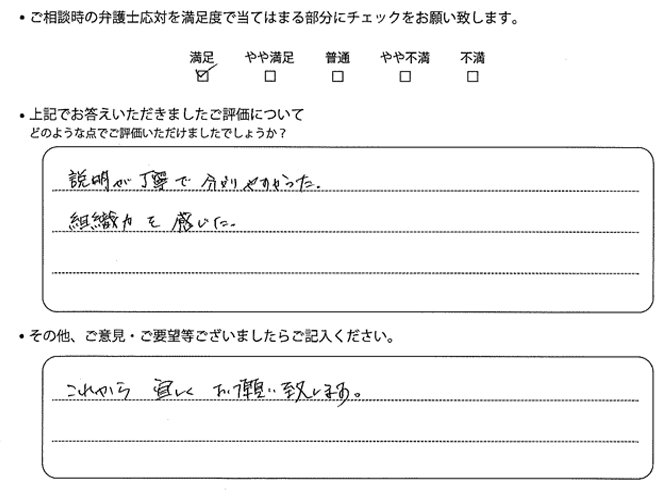 • ご相談時の弁護士応対を満足度で当てはまる部分にチェックをお願い致します。
満足 やや満足 普通 やや不満 不満
☑ □ □ □ □
• 上記でお答えいただきましたご評価について
どのような点でご評価いただけましたでしょうか？
説明が丁寧で分かりやすかった.
組織力を感じた.
• その他、ご意見・ご要望等ございましたらご記入ください。
これから宜しくお願い致します。